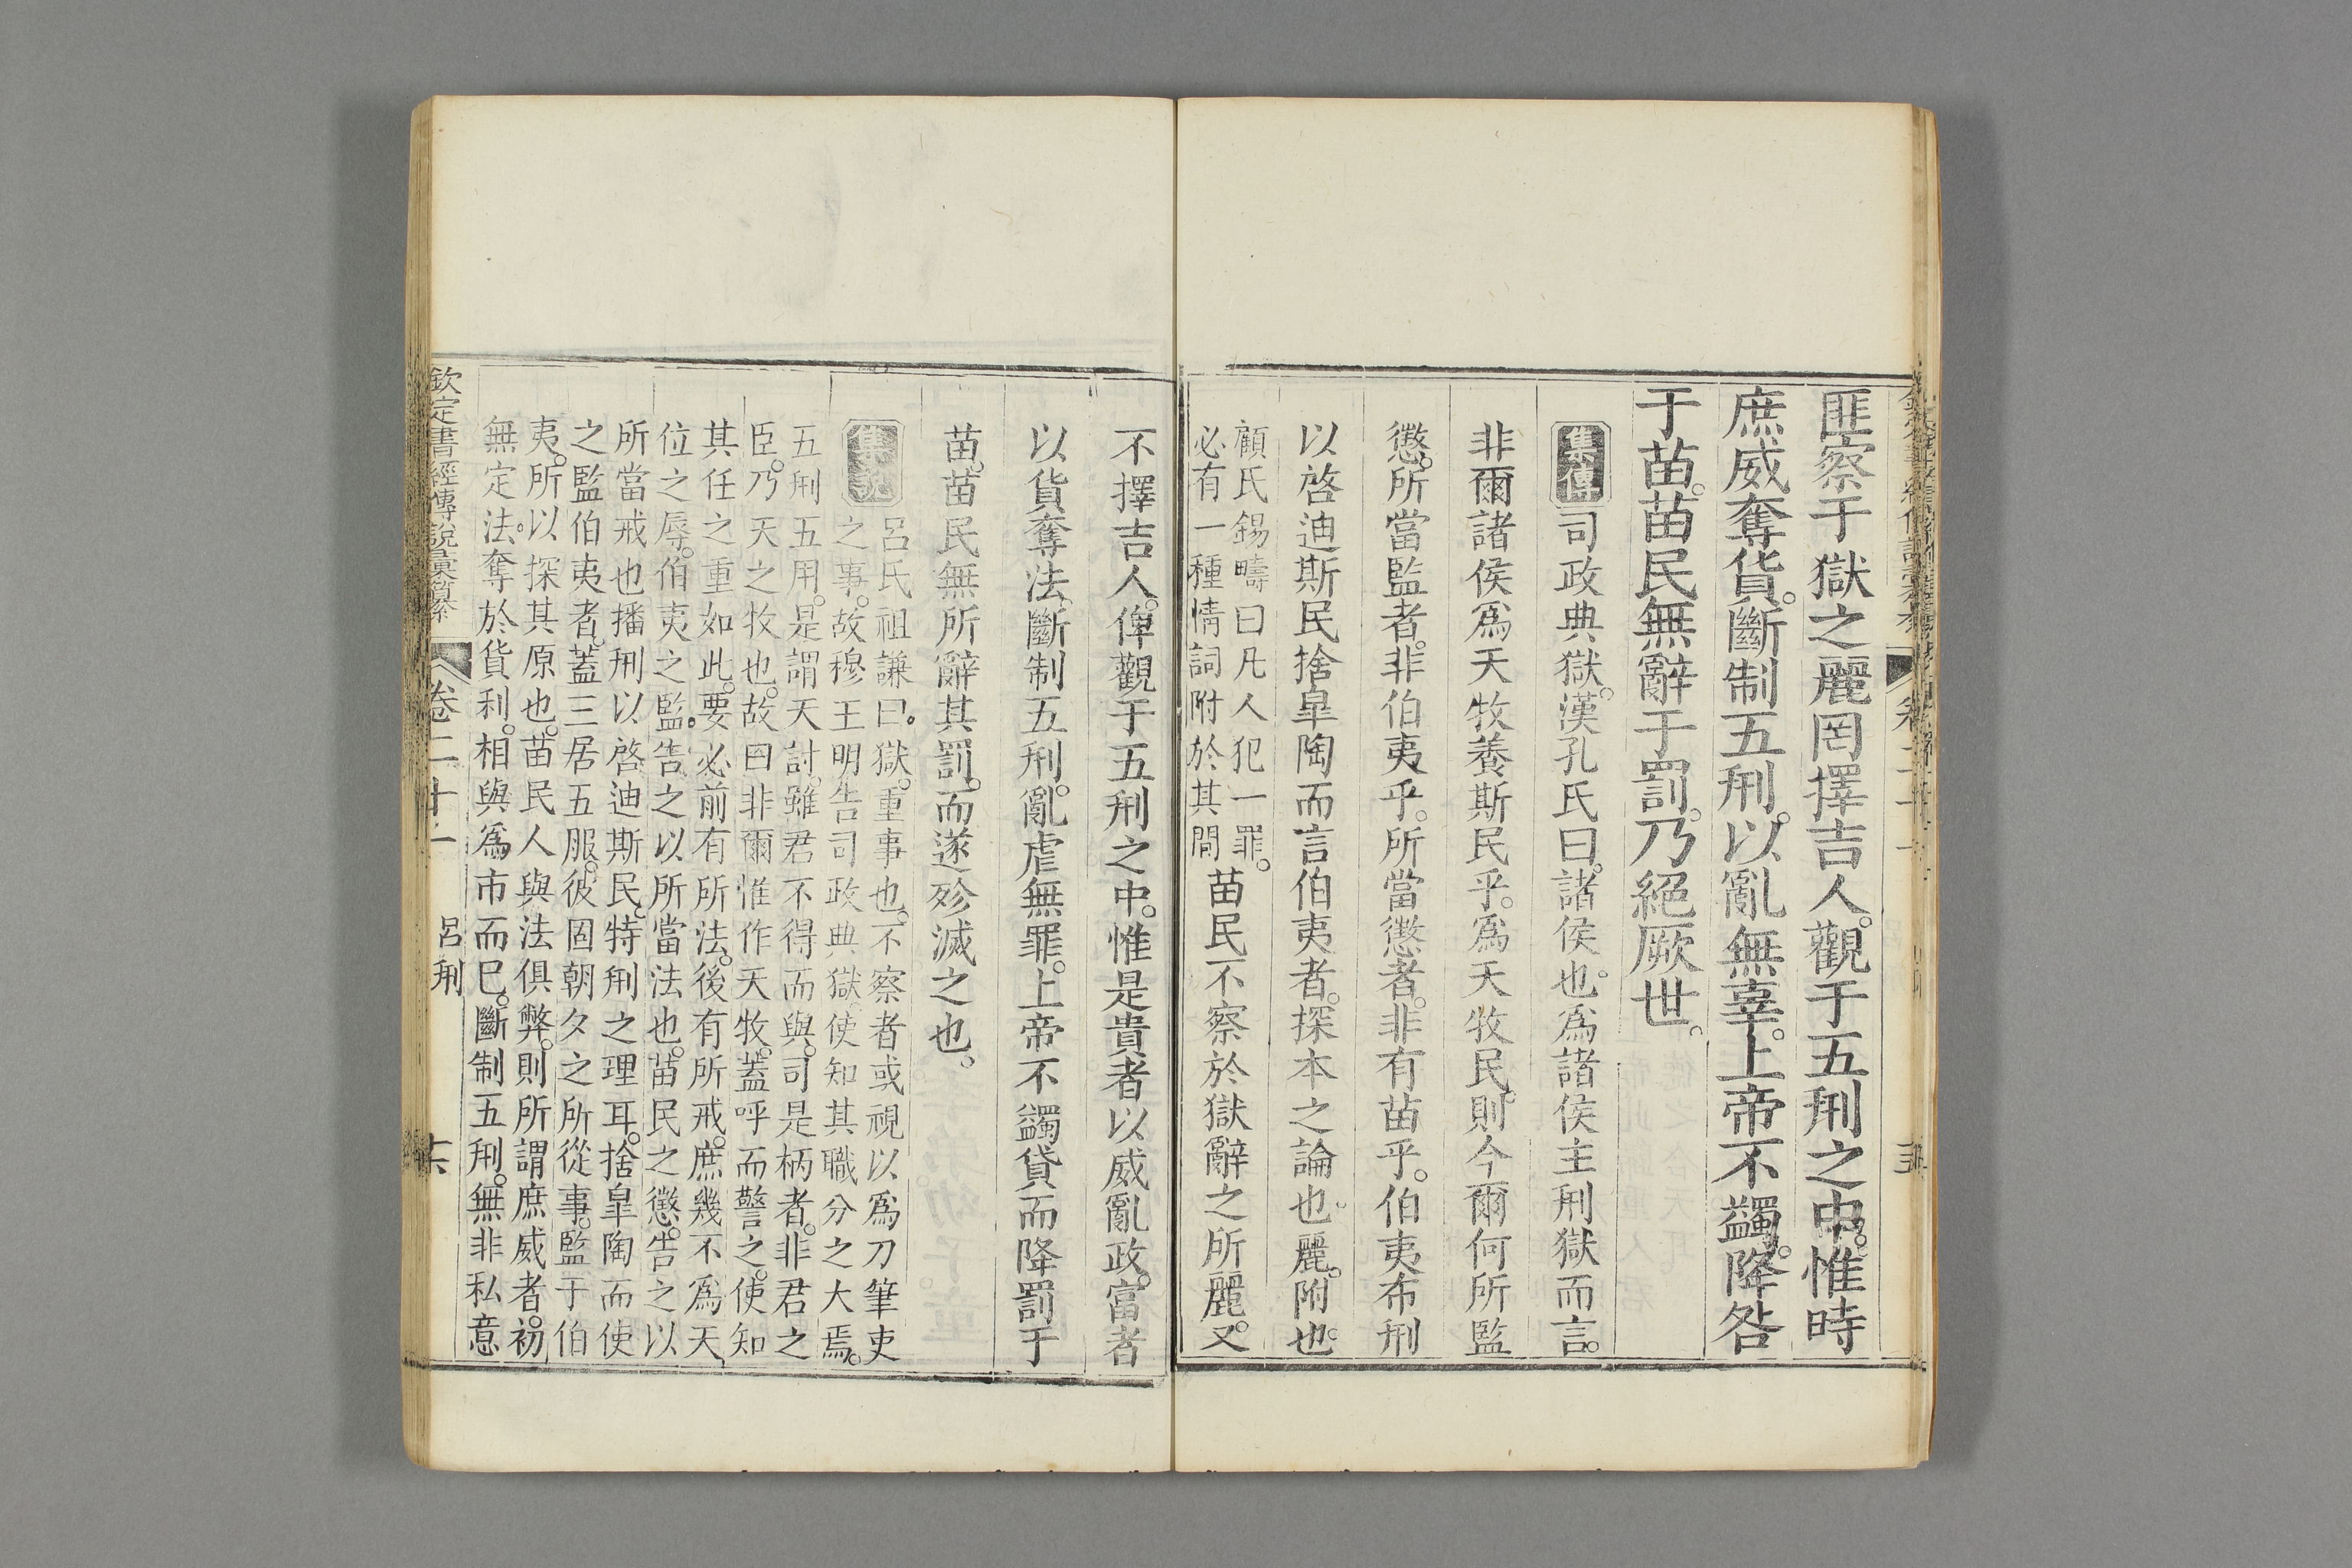 匪察于獄之麗罔擇吉人。觀于五刑之中。惟時
庶威奪貨。斷制五刑。以亂無辜。上帝不蠲。降咎
于苗。苗民無辭于罰。乃絕厥世。
集傳 司政典獄。漢孔氏曰。諸侯也。爲諸侯主刑獄而言。
非爾諸侯爲天牧養斯民乎。爲天牧民。則今爾何所監
懲。所當監者。非伯夷乎。所當懲者。非有苗乎。伯夷布刑
以啓迪斯民捨皐陶而言伯夷者。探本之論也。麗。附也。
顧氏錫疇曰凡人犯一罪。
必有一種情詞附於其間
苗民不察於獄辭之所麗。又
不擇吉人。俾觀于五刑之中。惟是貴者以威亂政。富者
以貨奪法。斷制五刑。亂虐無罪。上帝不蠲貸而降罰于
苗。苗民無所辭其罰。而遂殄滅之也。
集說 呂氏祖謙曰。獄。重事也。不察者或視以爲刀筆吏
之事。故穆王明告司政典獄。使知其職分之大焉。
五刑五用。是謂天討。雖君不得而與。司是柄者。非君之
臣。乃天之牧也。故曰非爾惟作天牧。蓋呼而警之。使知
其任之重如此。要必前有所法。後有所戒。庶幾不爲天
位之辱。伯夷之監。告之以所當法也。苗民之懲。告之以
所當戒也播刑以啓迪斯民。特刑之理耳。捨皐陶而使
之監伯夷者。蓋三居五服。彼固朝夕之所從事。監于伯
夷。所以探其原也。苗民人與法俱弊。則所謂庶威者。初
無定法。奪於貨利。相與爲市而巳。斷制五刑。無非私意
欽定書經傳說彙纂
卷二十一
呂刑